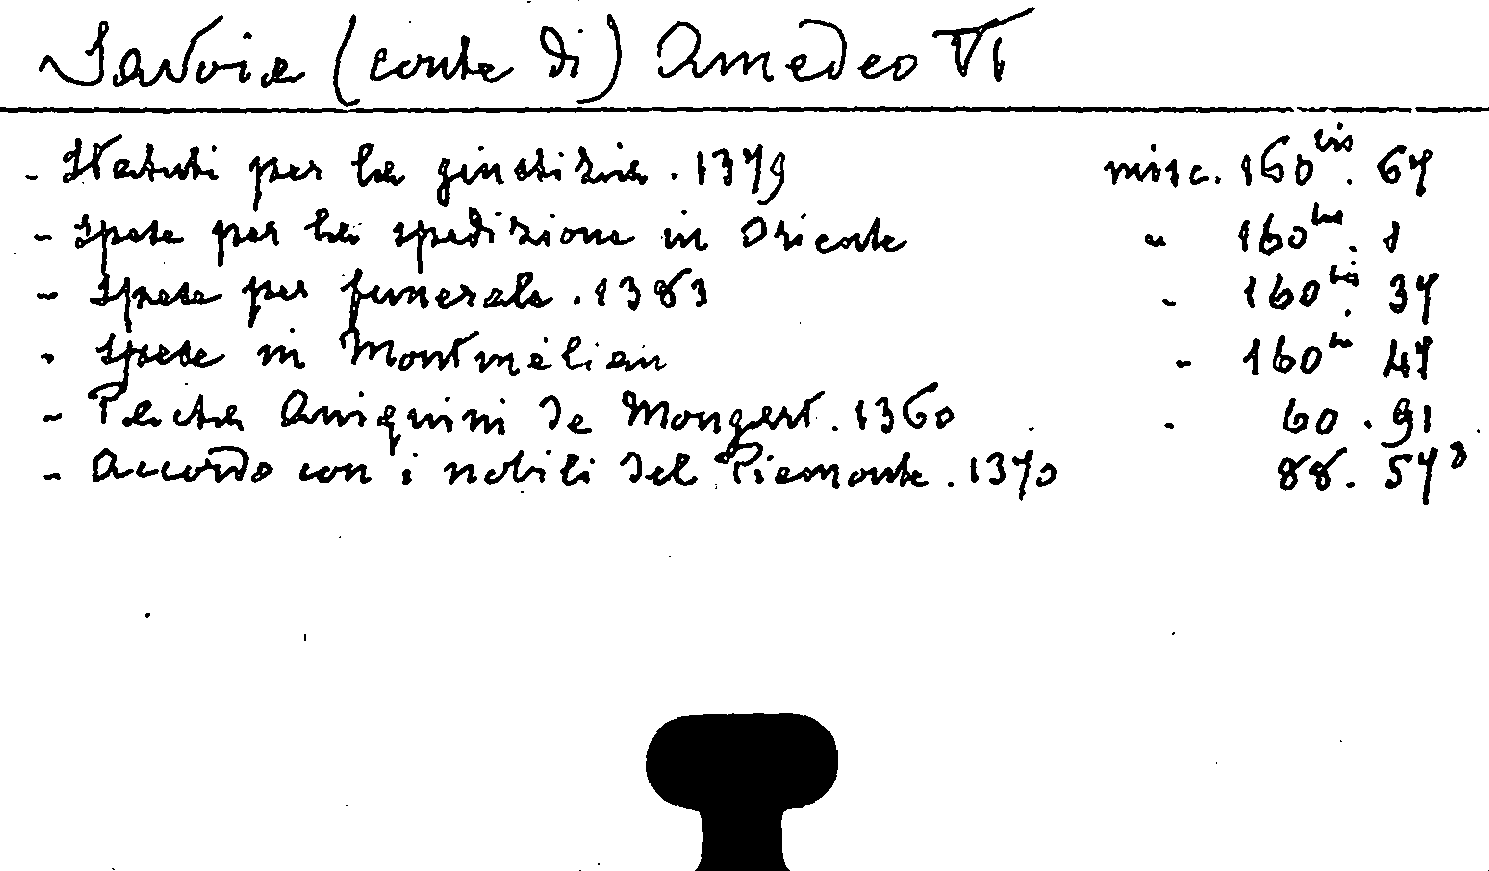 Savoia (conte di) Amedeo VI
- Statuti per la giustizia. 1379 misc. 160 bis. 67
- Spese per la spedizione in Oriente " 160 bis. 1
- Spese per funerale. 1383 - 160 bis. 37
- Spese in Montmélian - 160 bis 47
- Pacta Aniquini de Mongart. 1360 - 60. 91
- Accordo con i nobili del Piemonte. 1370 88. 57 8